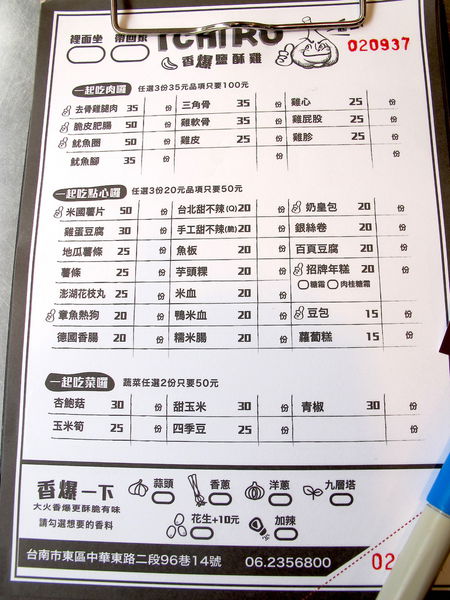 裡面坐 帶回家 ICHIRO 020937
香爆鹽酥雞
一起吃肉囉 任選3份35元品項只要100元
去骨雞腿肉 35 份 三角骨 35 份 雞心 25 份
脆皮肥腸 50 份 雞軟骨 35 份 雞屁股 25 份
魷魚圈 50 份 雞皮 25 份 雞胗 25 份
魷魚腳 35 份
一起吃點心囉 任選3份20元品項只要50元
米國薯片 50 份 台北甜不辣(Q) 20 份 奶皇包 20 份
雞蛋豆腐 30 份 手工甜不辣(脆) 20 份 銀絲卷 20 份
地瓜薯條 25 份 魚板 20 份 百頁豆腐 20 份
薯條 25 份 芋頭粿 20 份 招牌年糕 20 份
糖霜 肉桂糖霜
澎湖花枝丸 25 份 米血 20 份
章魚熱狗 20 份 鴨米血 20 份 豆包 15 份
德國香腸 20 份 糯米腸 20 份 蘿蔔糕 15 份
一起吃菜囉 蔬菜任選2份只要50元
杏鮑菇 30 份 甜玉米 30 份 青椒 30 份
玉米筍 25 份 四季豆 25 份 份
香爆一下 蒜頭 香蔥 洋蔥 九層塔
大火香爆更酥脆有味
請勾選想要的香料 花生+10元 加辣
台南市東區中華東路二段96巷14號 06.2356800 02